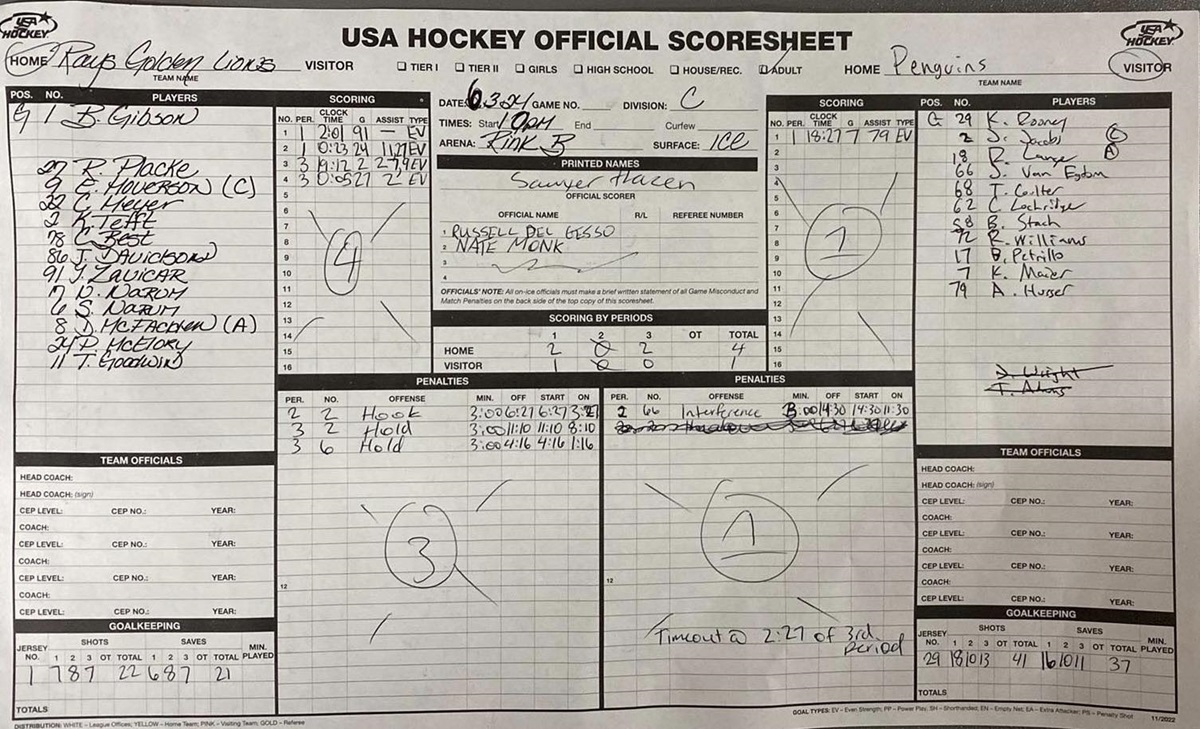 USA HOCKEY
USA HOCKEY
USA HOCKEY OFFICIAL SCORESHEET
HOME Rays Golden Lions VISITOR
TEAM NAME
TIER I TIER II GIRLS HIGH SCHOOL HOUSE/REC. ADULT
HOME Penguins VISITOR
TEAM NAME
POS. NO. PLAYERS
G 1 B. Gibson
27 R. Placke
9 E. Hoverson (C)
22 C. Meyer
2 K. Tefft
78 C. Best
86 J. Davidson
91 J. Zavicar
17 N. Narum
6 S. Narum
8 D. McFachen (A)
24 P. McElory
11 T. Goodwin
SCORING
NO. PER. CLOCK TIME G ASSIST TYPE
1 1 2:01 91 — EV
2 1 0:23 24 11,27 EV
3 3 19:12 2 27,9 EV
4 3 0:05 27 2 EV
5
6
7
8
9
10
11
12
13
14
15
16
4
DATE: 6.3.24 GAME NO. DIVISION: C
TIMES: Start 10pm End Curfew
ARENA: Rink B SURFACE: ICE
PRINTED NAMES
Sawyer Hacen
OFFICIAL SCORER
OFFICIAL NAME R/L REFEREE NUMBER
1 RUSSELL DEL GESSO
2 NATE MONK
3
4
OFFICIALS' NOTE: All on-ice officials must make a brief written statement of all Game Misconduct and
Match Penalties on the back side of the top copy of this scoresheet.
SCORING BY PERIODS
1 2 3 OT TOTAL
HOME 2 0 2 4
VISITOR 1 0 0 1
SCORING
NO. PER. CLOCK TIME G ASSIST TYPE
1 1 18:27 7 79 EV
2
3
4
5
6
7
8
9
10
11
12
13
14
15
16
1
POS. NO. PLAYERS
G 29 K. Rooney
2 J. Jacobs (C)
18 R. Lange (A)
66 J. Van Eydom
68 T. Coulter
62 C. Lockridge
58 B. Stach
72 R. Williams
17 B. Petrillo
7 K. Maier
79 A. Hurser
D. Wright
T. Adams
PENALTIES
PER. NO. OFFENSE MIN. OFF START ON
2 2 Hook 3:00 6:27 6:27 3:27
3 2 Hold 3:00 11:10 11:10 8:10
3 6 Hold 3:00 4:16 4:16 1:16
12
3
PENALTIES
PER. NO. OFFENSE MIN. OFF START ON
2 66 Interference 3:00 14:30 14:30 11:30
12
1
Timeout @ 2:27 of 3rd
period
TEAM OFFICIALS
HEAD COACH:
HEAD COACH: (sign)
CEP LEVEL: CEP NO.: YEAR:
COACH:
CEP LEVEL: CEP NO.: YEAR:
COACH:
CEP LEVEL: CEP NO.: YEAR:
COACH:
CEP LEVEL: CEP NO.: YEAR:
GOALKEEPING
SHOTS SAVES
JERSEY NO. 1 2 3 OT TOTAL 1 2 3 OT TOTAL MIN. PLAYED
1 7 8 7 22 6 8 7 21
TOTALS
TEAM OFFICIALS
HEAD COACH:
HEAD COACH: (sign)
CEP LEVEL: CEP NO.: YEAR:
COACH:
CEP LEVEL: CEP NO.: YEAR:
COACH:
CEP LEVEL: CEP NO.: YEAR:
COACH:
CEP LEVEL: CEP NO.: YEAR:
GOALKEEPING
SHOTS SAVES
JERSEY NO. 1 2 3 OT TOTAL 1 2 3 OT TOTAL MIN. PLAYED
29 18 10 13 41 16 10 11 37
TOTALS
DISTRIBUTION: WHITE – League Offices; YELLOW – Home Team; PINK – Visiting Team; GOLD – Referee
GOAL TYPES: EV – Even Strength; PP – Power Play; SH – Shorthanded; EN – Empty Net; EA – Extra Attacker; PS – Penalty Shot 11/2022